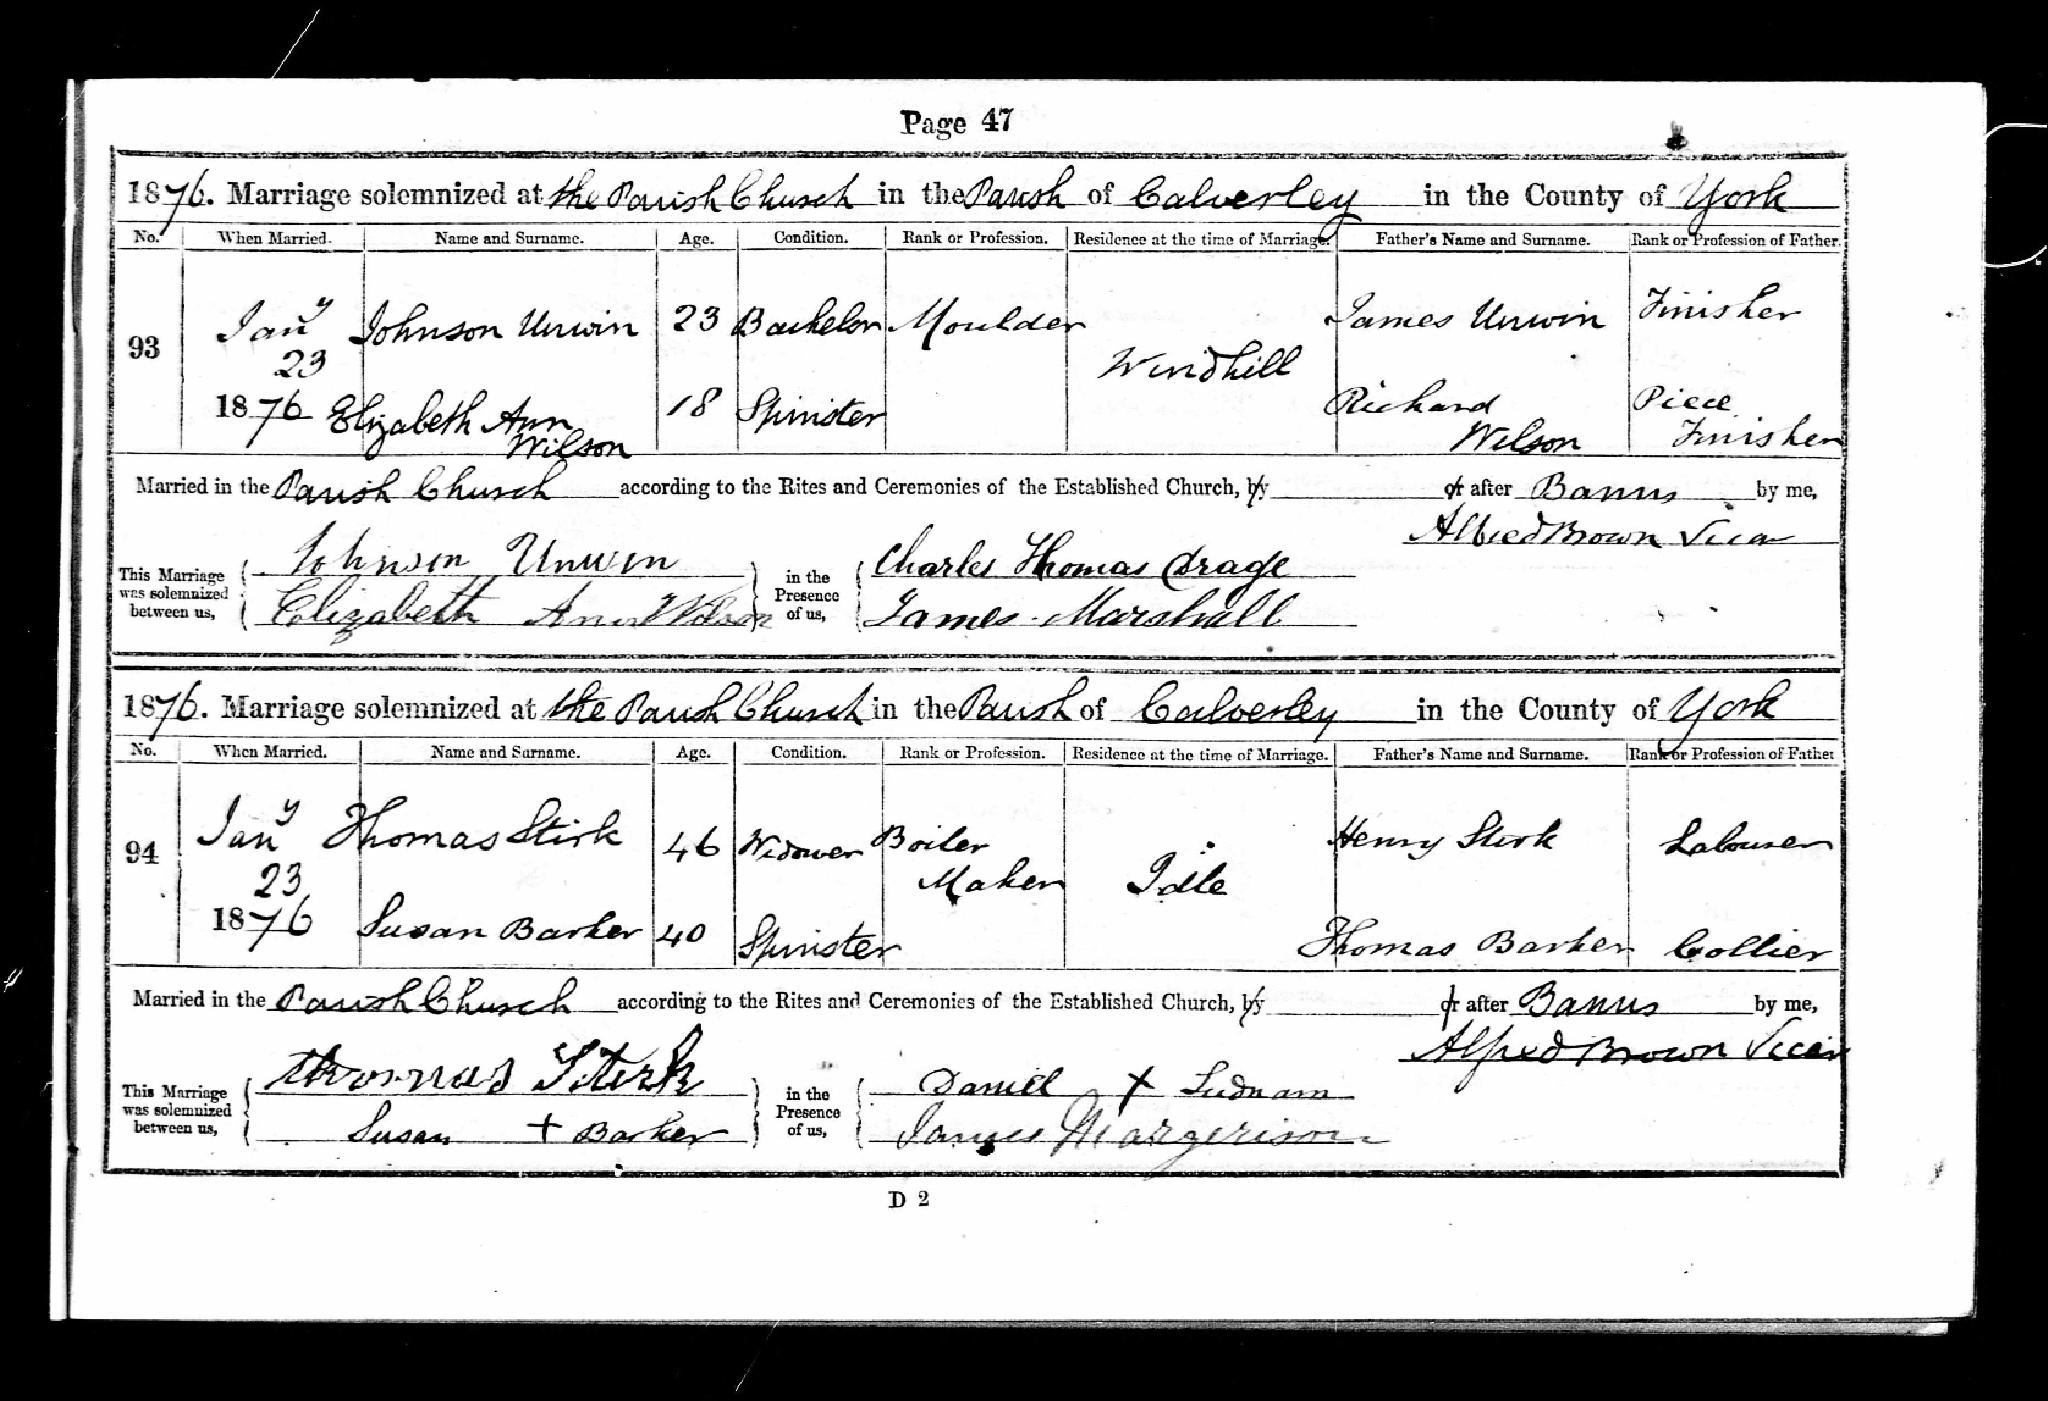 Page 47
1876. Marriage solemnized at the Parish Church in the Parish of Calverley in the County of York
No. When Married. Name and Surname. Age. Condition. Rank or Profession. Residence at the time of Marriage. Father's Name and Surname. Rank or Profession of Father.
93 Jany Johnson Unwin 23 Bachelor Moulder James Unwin Finisher
23 Windhill
1876 Elizabeth Ann 18 Spinister Richard Piece
Wilson Wilson Finisher
Married in the Parish Church according to the Rites and Ceremonies of the Established Church, by or after Banns by me,
Alfred Brown Vicar
This Marriage was solemnized between us, Johnson Unwin in the Presence of us, Charles Thomas Drage
Elizabeth Ann Wilson James Marshall
1876. Marriage solemnized at the Parish Church in the Parish of Calverley in the County of York
No. When Married. Name and Surname. Age. Condition. Rank or Profession. Residence at the time of Marriage. Father's Name and Surname. Rank or Profession of Father
94 Jany Thomas Stirk 46 Widower Boiler Henry Stirk Labourer
23 Maker Idle
1876 Susan Barker 40 Spinister Thomas Barker Collier
Married in the Parish Church according to the Rites and Ceremonies of the Established Church, by or after Banns by me,
Alfred Brown Vicar
This Marriage was solemnized between us, Thomas Stirk in the Presence of us, Daniel + Ludnam
Susan + Barker James Margerison
D 2